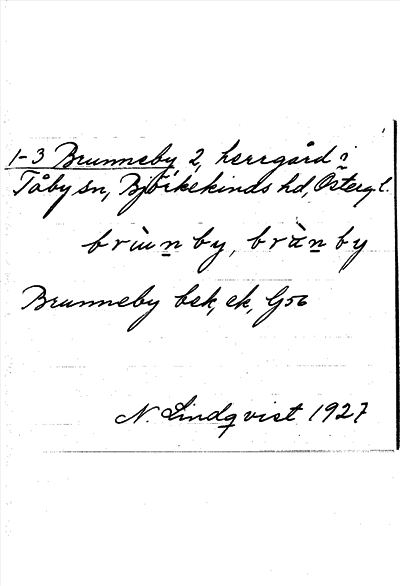 1-3 Brunneby, 2, herrgård i
Tåby sn, Björkekinds hd, Östergl.
brùn by, bràn by
Brunneby bek, ek, G56
N. Lindqvist 1927